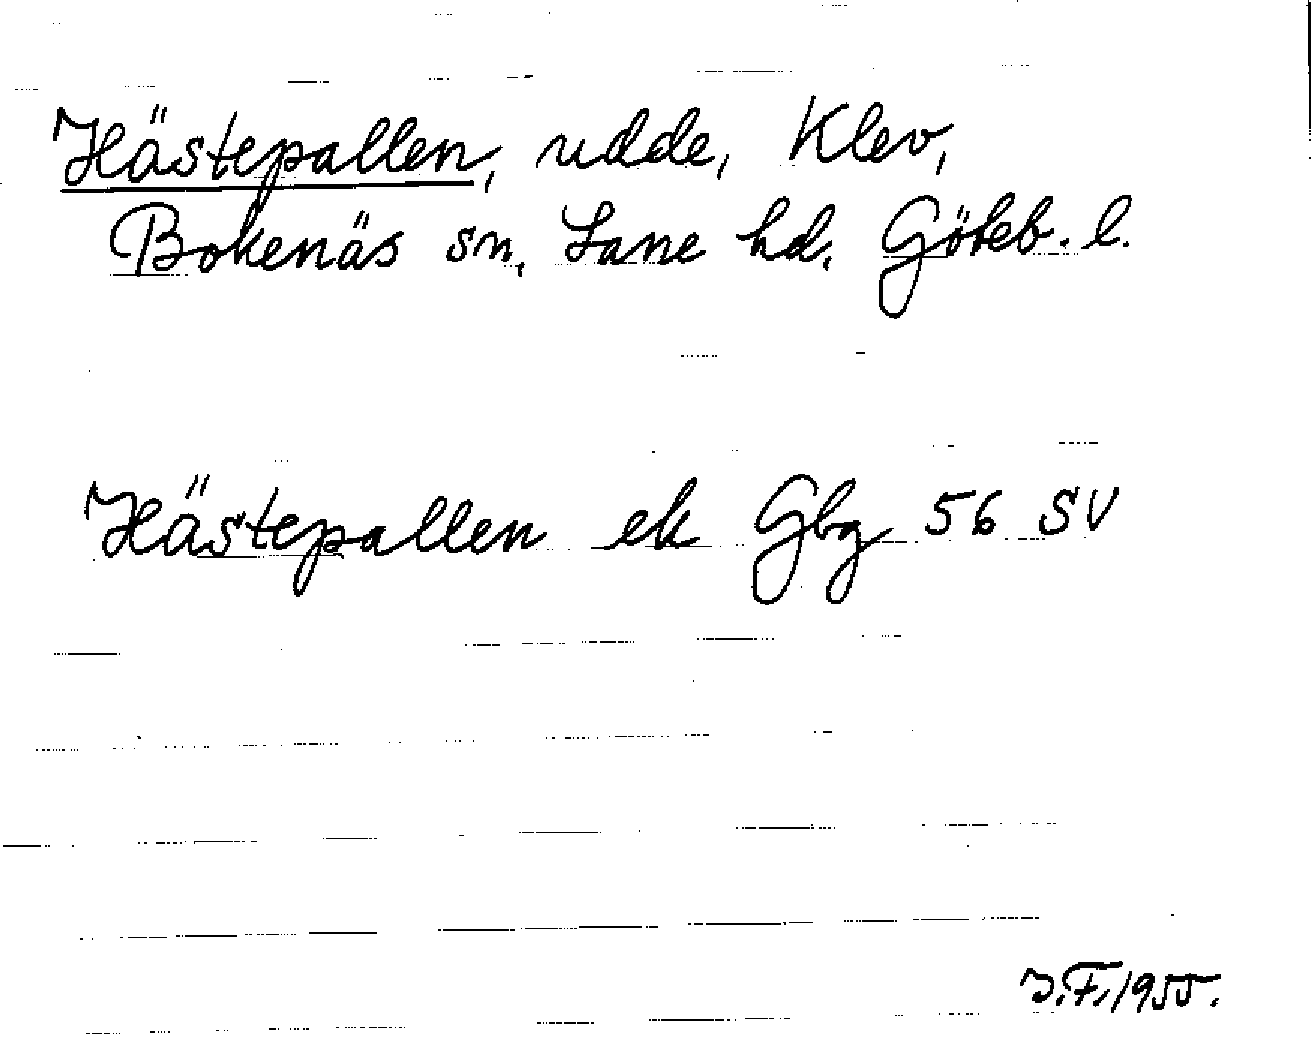 Hästepallen, udde, Klev,
Bokenäs sn, Lane hd, Göteb. l.
Hästepallen ek Gbg 56 SV
J.F. 1955.